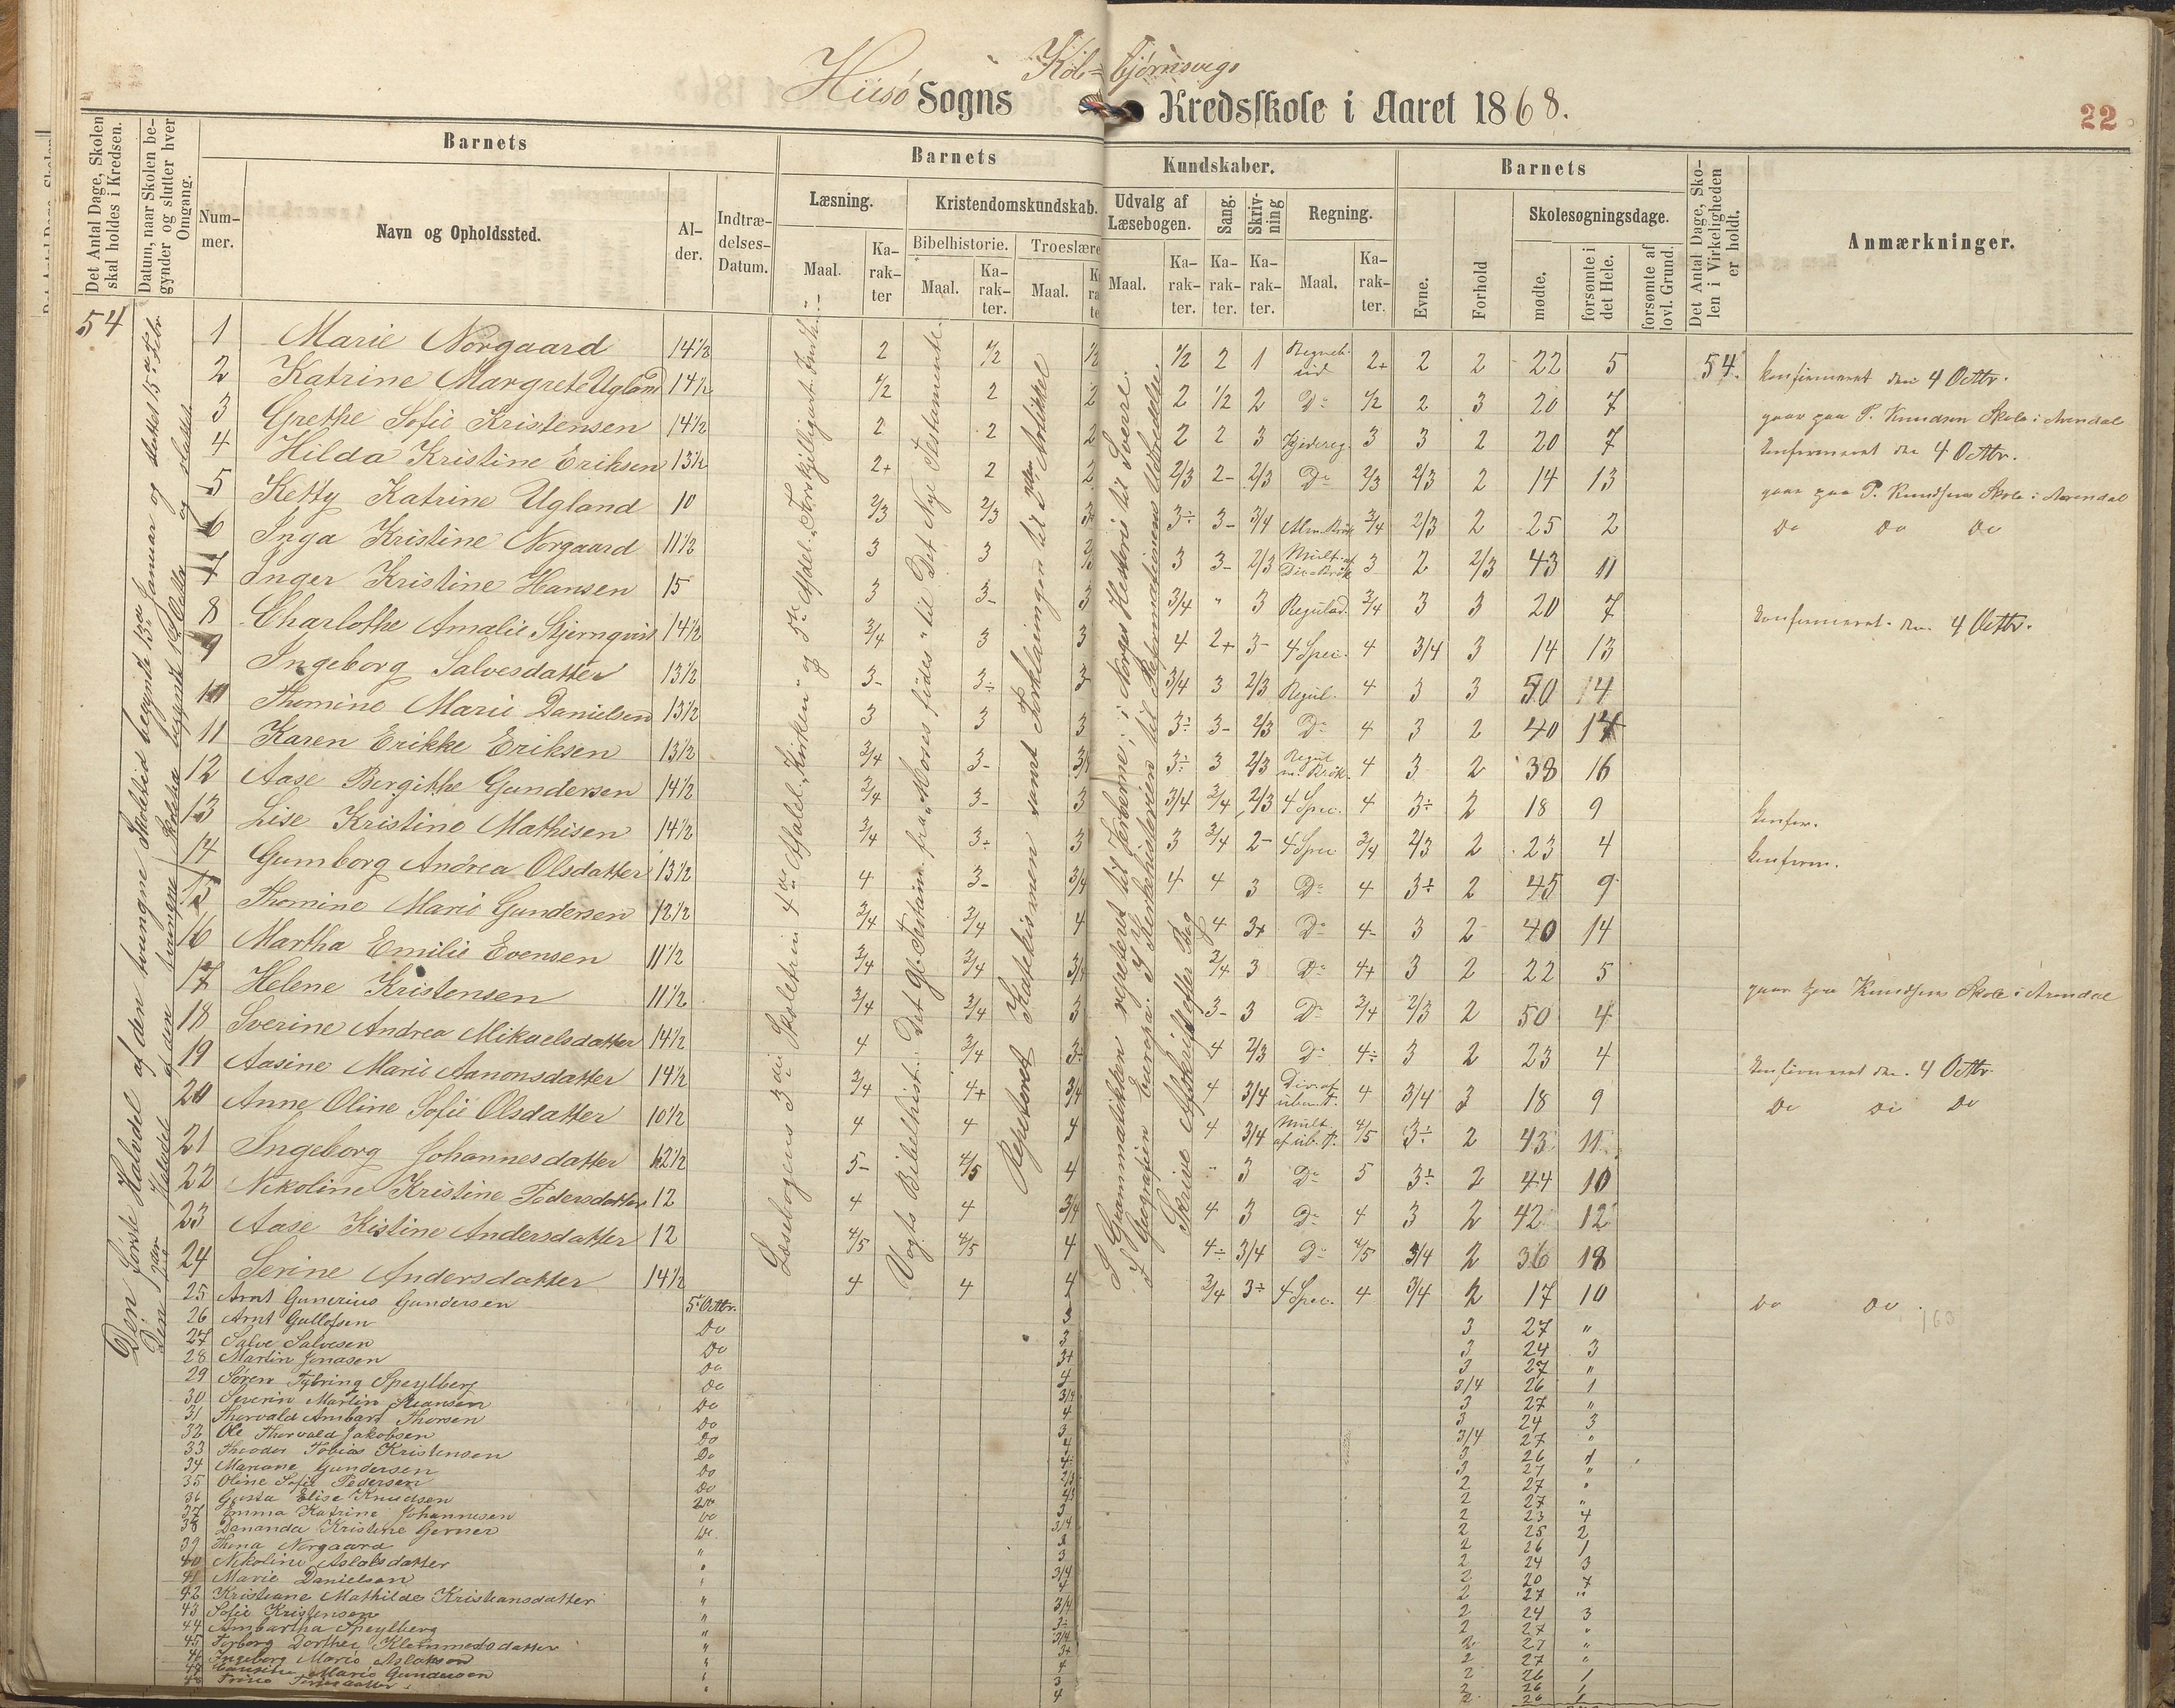 Kolbjørnsvigs
Hisø Sogns Kredsskole i Aaret 1868.
22
Det Antal Dage, Skolen skal holdes i Kredsen.
Datum, naar Skolen begynder og slutter hver Omgang.
Barnets
Nummer.
Navn og Opholdssted.
Alder.
Indtrædelses-Datum.
Barnets Kundskaber.
Læsning.
Maal.
Karakter
Kristendomskundskab.
Bibelhistorie.
Maal.
Karakter.
Troeslære
Maal.
Udvalg af Læsebogen.
Maal.
Karakter.
Sang.
Karakter.
Skrivning
Karakter.
Regning.
Maal.
Karakter.
Barnets
Evne.
Forhold
Skolesøgningsdage.
mødte.
forsømte i det Hele.
forsømte af lovl. Grund.
Det Antal Dage, Skolen i Virkeligheden er holdt.
Anmærkninger.
54
Den første Halvdel af den tvungne Skoletid begyndte 13de Januar og sluttet 15de Febr.
Læsebogens 3die Skoletrin 4de Afdel. "Kirken" og 5te Afdel. "Forskjelligart. Indh."
Vogts Bibelhist.: Det Gl. Testam. fra "Moses fødes" til Det Nye Testamente
Repeteret Katekismen samt Forklaringen til 2den Artikkel
I Grammatikken repeteret til Verberne; i Norges Historie til Sverre.
I Geografien Europa. I Kirkehistorien til Reformationens Udbredelse.
Skrive Afskrift efter Bog
1 Marie Norgaard 14½ 2 ½ ½ ½ 2 1 Regneb. ud 2+ 2 2 22 5 54. konfirmeret den 4 Octbr.
2 Katrine Margrete Ugland 14½ ½ 2 2 2 ½ 2 Do ½ 2 3 20 7 gaar paa P. Knudsen Skole i Arendal
3 Grethe Sofie Kristensen 14½ 2 2 2 2 2 3 Kjædereg. 3 3 2 20 7 konfirmeret den 4 Octbr.
4 Hilda Kristine Eriksen 13½ 2+ 2 2 2/3 2- 2/3 Do 2/3 2/3 2 14 13 gaar paa P. Knudsens Skole i Arendal
5 Ketty Katrine Ugland 10 2/3 2/3 3÷ 3- 3/4 Alm. Brøk 3/4 2/3 2 25 2 Do Do Do
6 Inga Kristine Norgaard 11½ 3 3 3 3- 2/3 Mult. og Div. Brøk 3 2 2/3 43 11
7 Inger Kristine Hansen 15 3 3- 3 3/4 " 3 Reguld. 3/4 3 3 20 7 konfirmeret den 4 Octbr.
8 Charlothe Amalie Stjernqvist 14½ 3/4 3 3 4 2+ 3- 4 Spec. 4 3/4 3 14 13
9 Ingeborg Salvesdatter 13½ 3- 3÷ 3- 3/4 3 2/3 Regul. 4 3 3 50 14
10 Thomine Marie Danielsen 13½ 3 3 3 3÷ 3- 2/3 Do 4 3 2 40 14
11 Karen Erikke Eriksen 13½ 3/4 3- 3/4 3÷ 3 2/3 Regul. m. Brøk. 4 3 2 38 16
12 Aase Bergithe Gundersen 14½ 3/4 3- 3 3/4 3/4 2/3 4 Spec. 4 3÷ 2 18 9 konfir.
13 Lise Kristine Mathisen 14½ 3/4 3÷ 3 3 3/4 2- 4 Spec 3/4 2/3 2 23 4 konfirm.
14 Gumborg Andrea Olsdatter 13½ 4 3- 3/4 4 4 3 Do 4 3÷ 2 45 9
15 Thomine Marie Gundersen 12½ 3/4 3/4 4 4 3+ Do 4- 3 2 40 14
16 Martha Emilie Evensen 11½ 3/4 3/4 3/4 3/4 3 Do 4+ 3 2 22 5
17 Helene Kristensen 11½ 3/4 3/4 3 3- 3 Do 3/4 2/3 2 50 4 gaar paa Knudsens Skole i Arendal
18 Sverine Andrea Mikaelsdatter 14½ 4 3/4 3÷ 4 2/3 Do 4÷ 3 2 23 4 konfirmeret den 4 Octbr.
19 Aasine Marie Aanonsdatter 14½ 3/4 4+ 3/4 4 3/4 Div. af ubn. T. 4 3/4 3 18 9 Do Do Do
20 Anne Oline Sofie Olsdatter 10½ 4 4 4 4 3/4 Mult. af ub. T. 4/5 3÷ 2 43 11
21 Ingeborg Johannesdatter 12½ 5- 4/5 4 " 3 Do 5 3÷ 2 44 10
22 Nikoline Kristine Pedersdatter 12 4 4 3/4 4 3 Do 4 3 2 42 12
23 Aase Kistine Andersdatter 12 4/5 4/5 4 4÷ 3/4 Do 4/5 3/4 2 36 18
24 Serine Andersdatter 14½ 4 4 4 3/4 3÷ 4 Spec. 4 3/4 2 17 10 Do Do
25 Arnt Gunerius Gundersen 5te Octbr. 3 3 27 "
26 Arnt Gullofsen Do 3 3 24 3
27 Salve Salvesen Do 3+ 3 27 "
28 Martin Jonasen Do 4 3/4 26 1
29 Søren Tybring Speylberg Do 3/4 3 27 "
30 Severin Martin Svansen Do 4 3 24 3
31 Thorvald Ambart Thorsen Do 3 3/4 27 "
32 Ole Thorvald Jakobsen Do 4 3 26 1
33 Theodor Tobias Kristensen Do 3 27 "
34 Mariane Gundersen Do 2 27 "
35 Oline Sofie Pedersen Do 2 27 "
36 Gusta Elise Knudsen Do 3 2 23 4
37 Emma Katrine Johannesen Do 3/4 2 25 2
38 Dananda Kristine Gerner Do 2 26 1
39 Thena Norgaard " 3 2 24 3
40 Nikoline Aslaksdatter " 3/4 2 20 7
41 Marie Danielsen " 4 2 27 "
42 Kristiane Mathilde Kristiansdatter " 3/4 2 24 3
43 Sofie Kristensen " 3÷ 2 27 "
44 Ambartha Speylberg " 3/4 2 27 "
45 Torborg Dorthea Klemmetsdatter " 3+ 2 27 "
46 Ingeborg Marie Aslaksen " 4 2 26 1
47 Marie Gundersen " 3 2 26 1
48 " 4 2 26 1